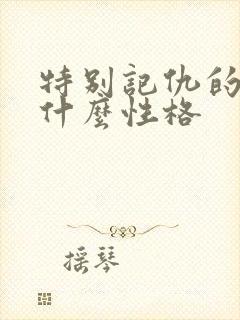 特别記仇的
什麼性格
摇琴